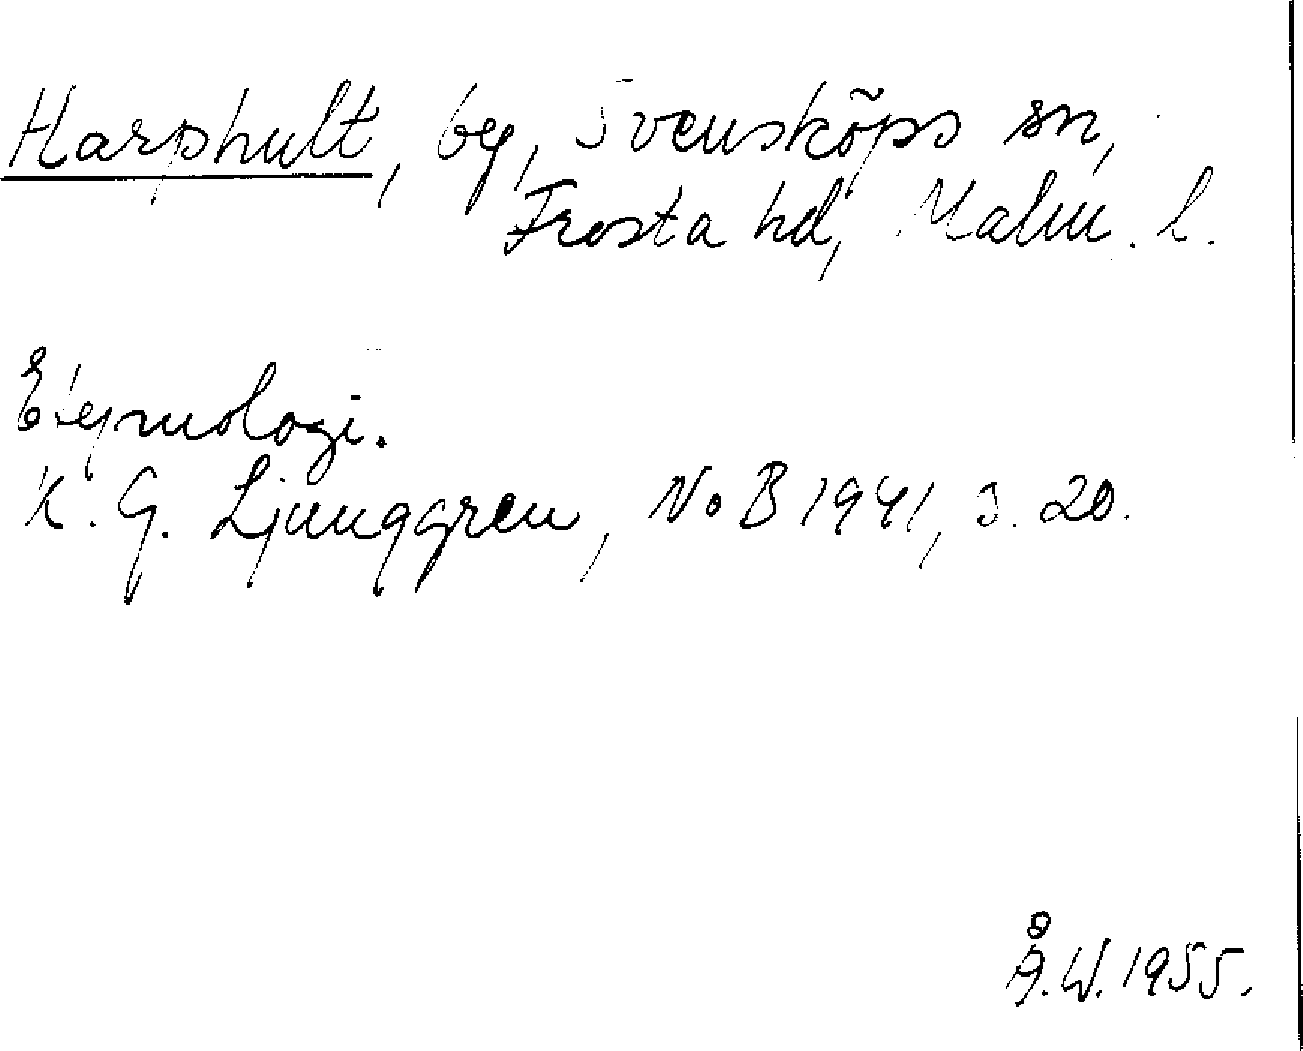 Harphult, by, Svensköps sn,
Frosta hd, Malm. l.
Etymologi.
K. G. Ljunggren, NoB 1941, s. 20.
Å.W. 1955.